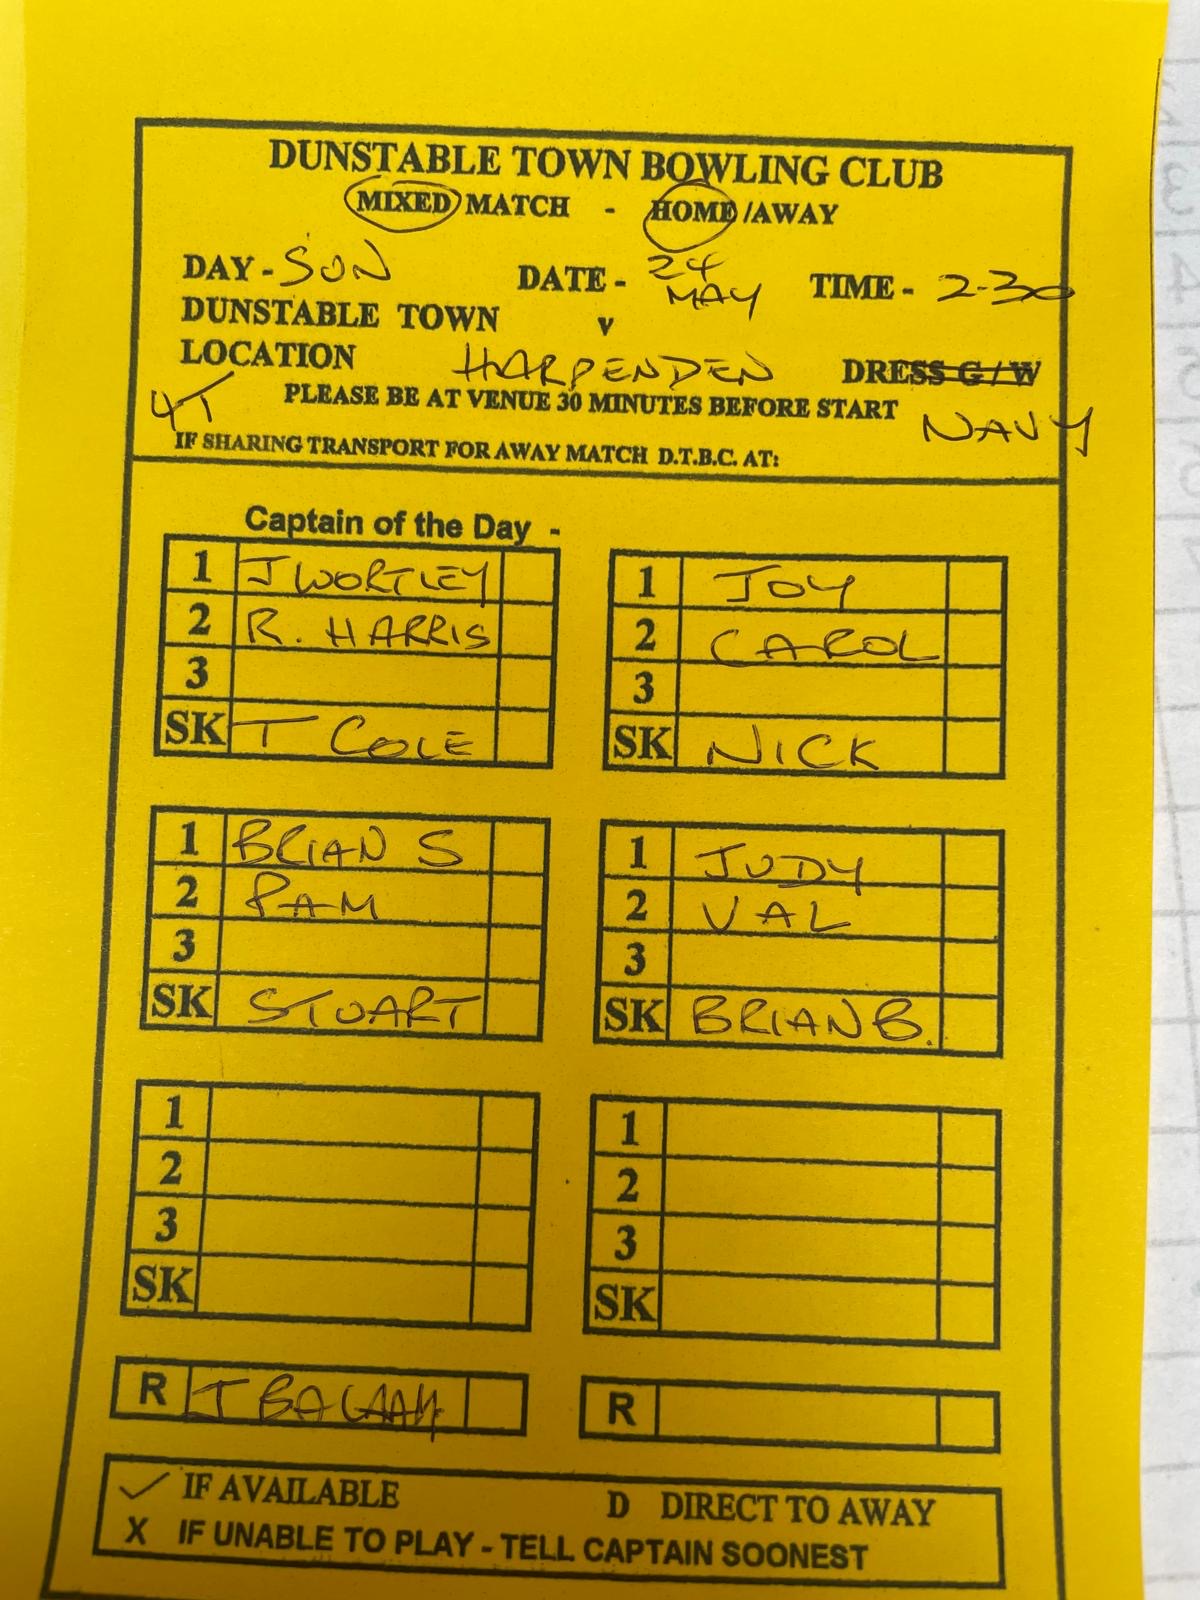 DUNSTABLE TOWN BOWLING CLUB
MIXED MATCH - HOME/AWAY
DAY - SUN DATE - 24 MAY TIME - 2-30
DUNSTABLE TOWN v
LOCATION HARPENDEN DRESS G/W
4T PLEASE BE AT VENUE 30 MINUTES BEFORE START NAVY
IF SHARING TRANSPORT FOR AWAY MATCH D.T.B.C. AT:
Captain of the Day -
1 J WORTLEY
2 R. HARRIS
3
SK T COLE
1 JOY
2 CAROL
3
SK NICK
1 BRIAN S
2 PAM
3
SK STUART
1 JUDY
2 VAL
3
SK BRIAN B.
1
2
3
SK
1
2
3
SK
R J
R
✓ IF AVAILABLE D DIRECT TO AWAY
X IF UNABLE TO PLAY - TELL CAPTAIN SOONEST